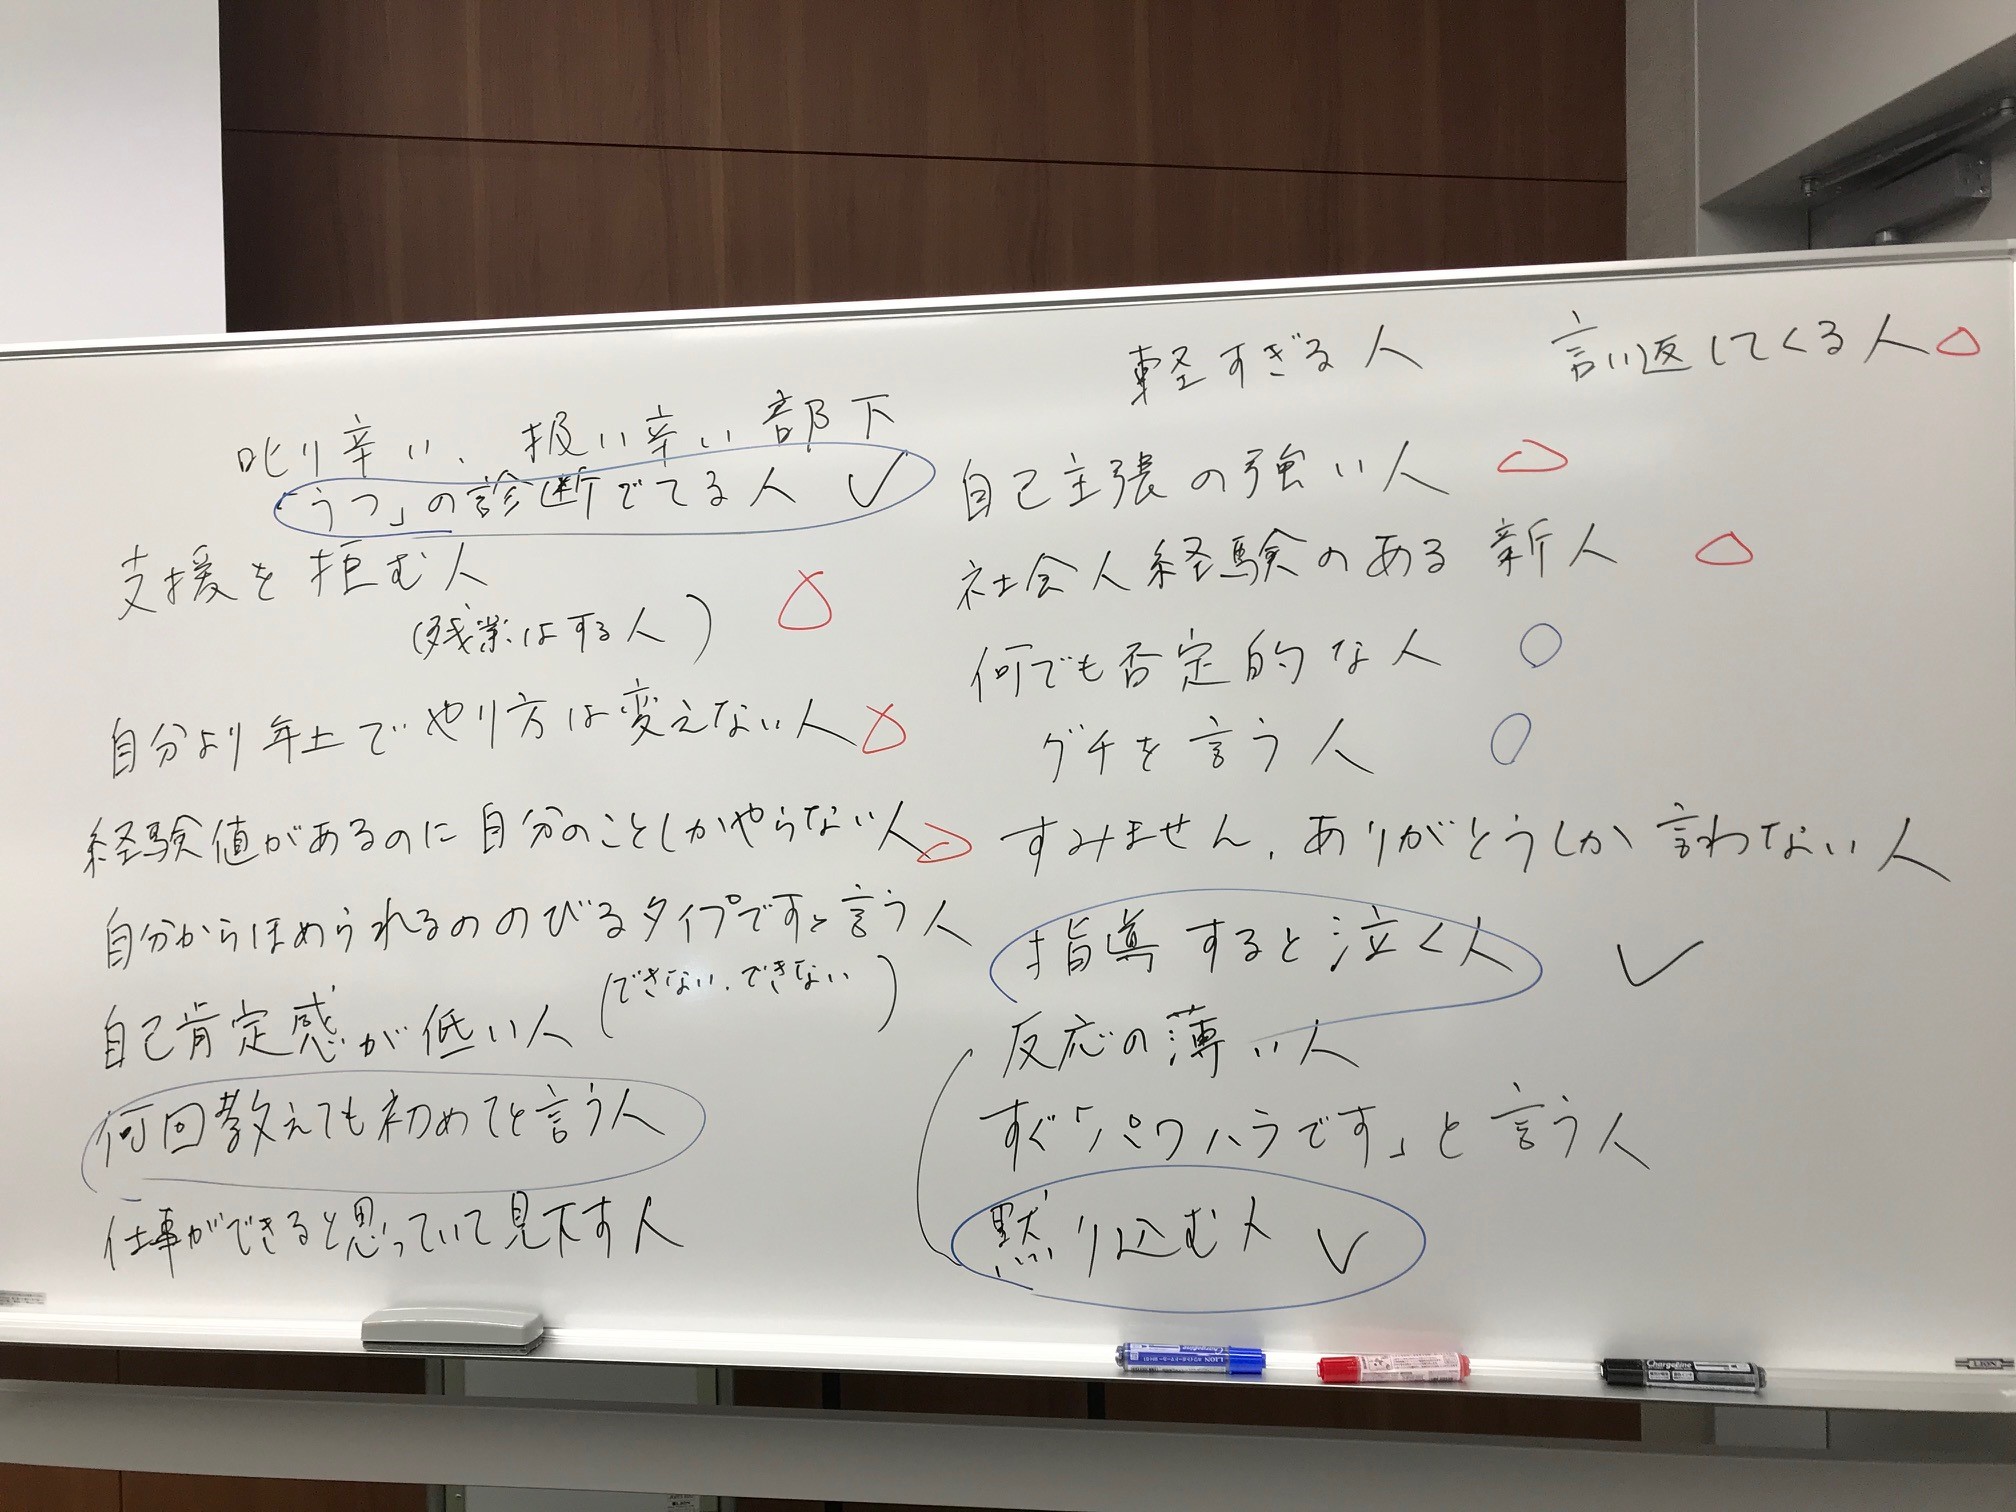 叱り辛い、扱い辛い部下
「うつ」の診断でてる人 ✓
支援を拒む人
(残業はする人)
自分より年上でやり方は変えない人
経験値があるのに自分のことしかやらない人
自分からほめられるののびるタイプですと言う人
自己肯定感が低い人 (できない、できない)
何回教えても初めてと言う人
仕事ができると思っていて見下す人
軽すぎる人 言い返してくる人
自己主張の強い人
社会人経験のある新人
何でも否定的な人
グチを言う人
すみません、ありがとうしか言わない人
指導すると泣く人 ✓
反応の薄い人
すぐ「パワハラです」と言う人
黙り込む人 ✓
LION
Chargeline
LION